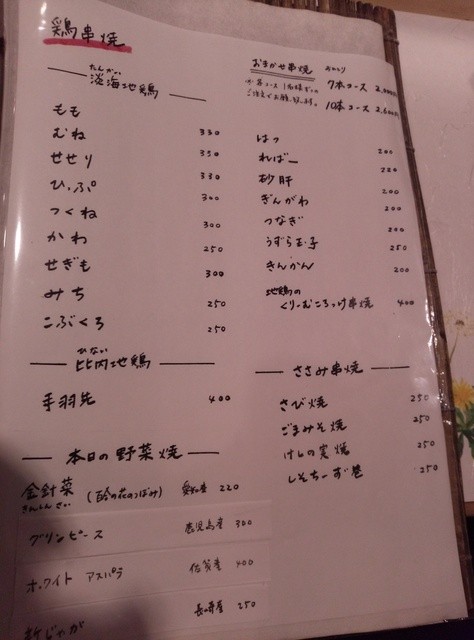 鶏串焼
たんかい
淡海地鶏
もも
むね 330
せせり 350
ひっぷ 330
つくね 300
かわ 300
せぎも 250
みち 300
こぶくろ 250
250
ひない
比内地鶏
手羽先 400
本日の野菜焼
金針菜 (百合の花のつぼみ) 愛知産 220
きんしんさい
グリンピース 鹿児島産 300
ホワイト アスパラ 佐賀産 400
新じゃが 長崎産 250
おまかせ串焼
7本コース 2,000円
ご注文でお願い致します。
10本コース 2,600円
はつ
ればー 200
砂肝 220
ぎんがわ 200
つなぎ 200
うずら玉子 200
きんかん 250
地鶏の 200
くりーむころっけ串焼 400
ささみ串焼
さび焼 250
ごまみそ焼 250
けしの実焼 250
しそちーず巻 250